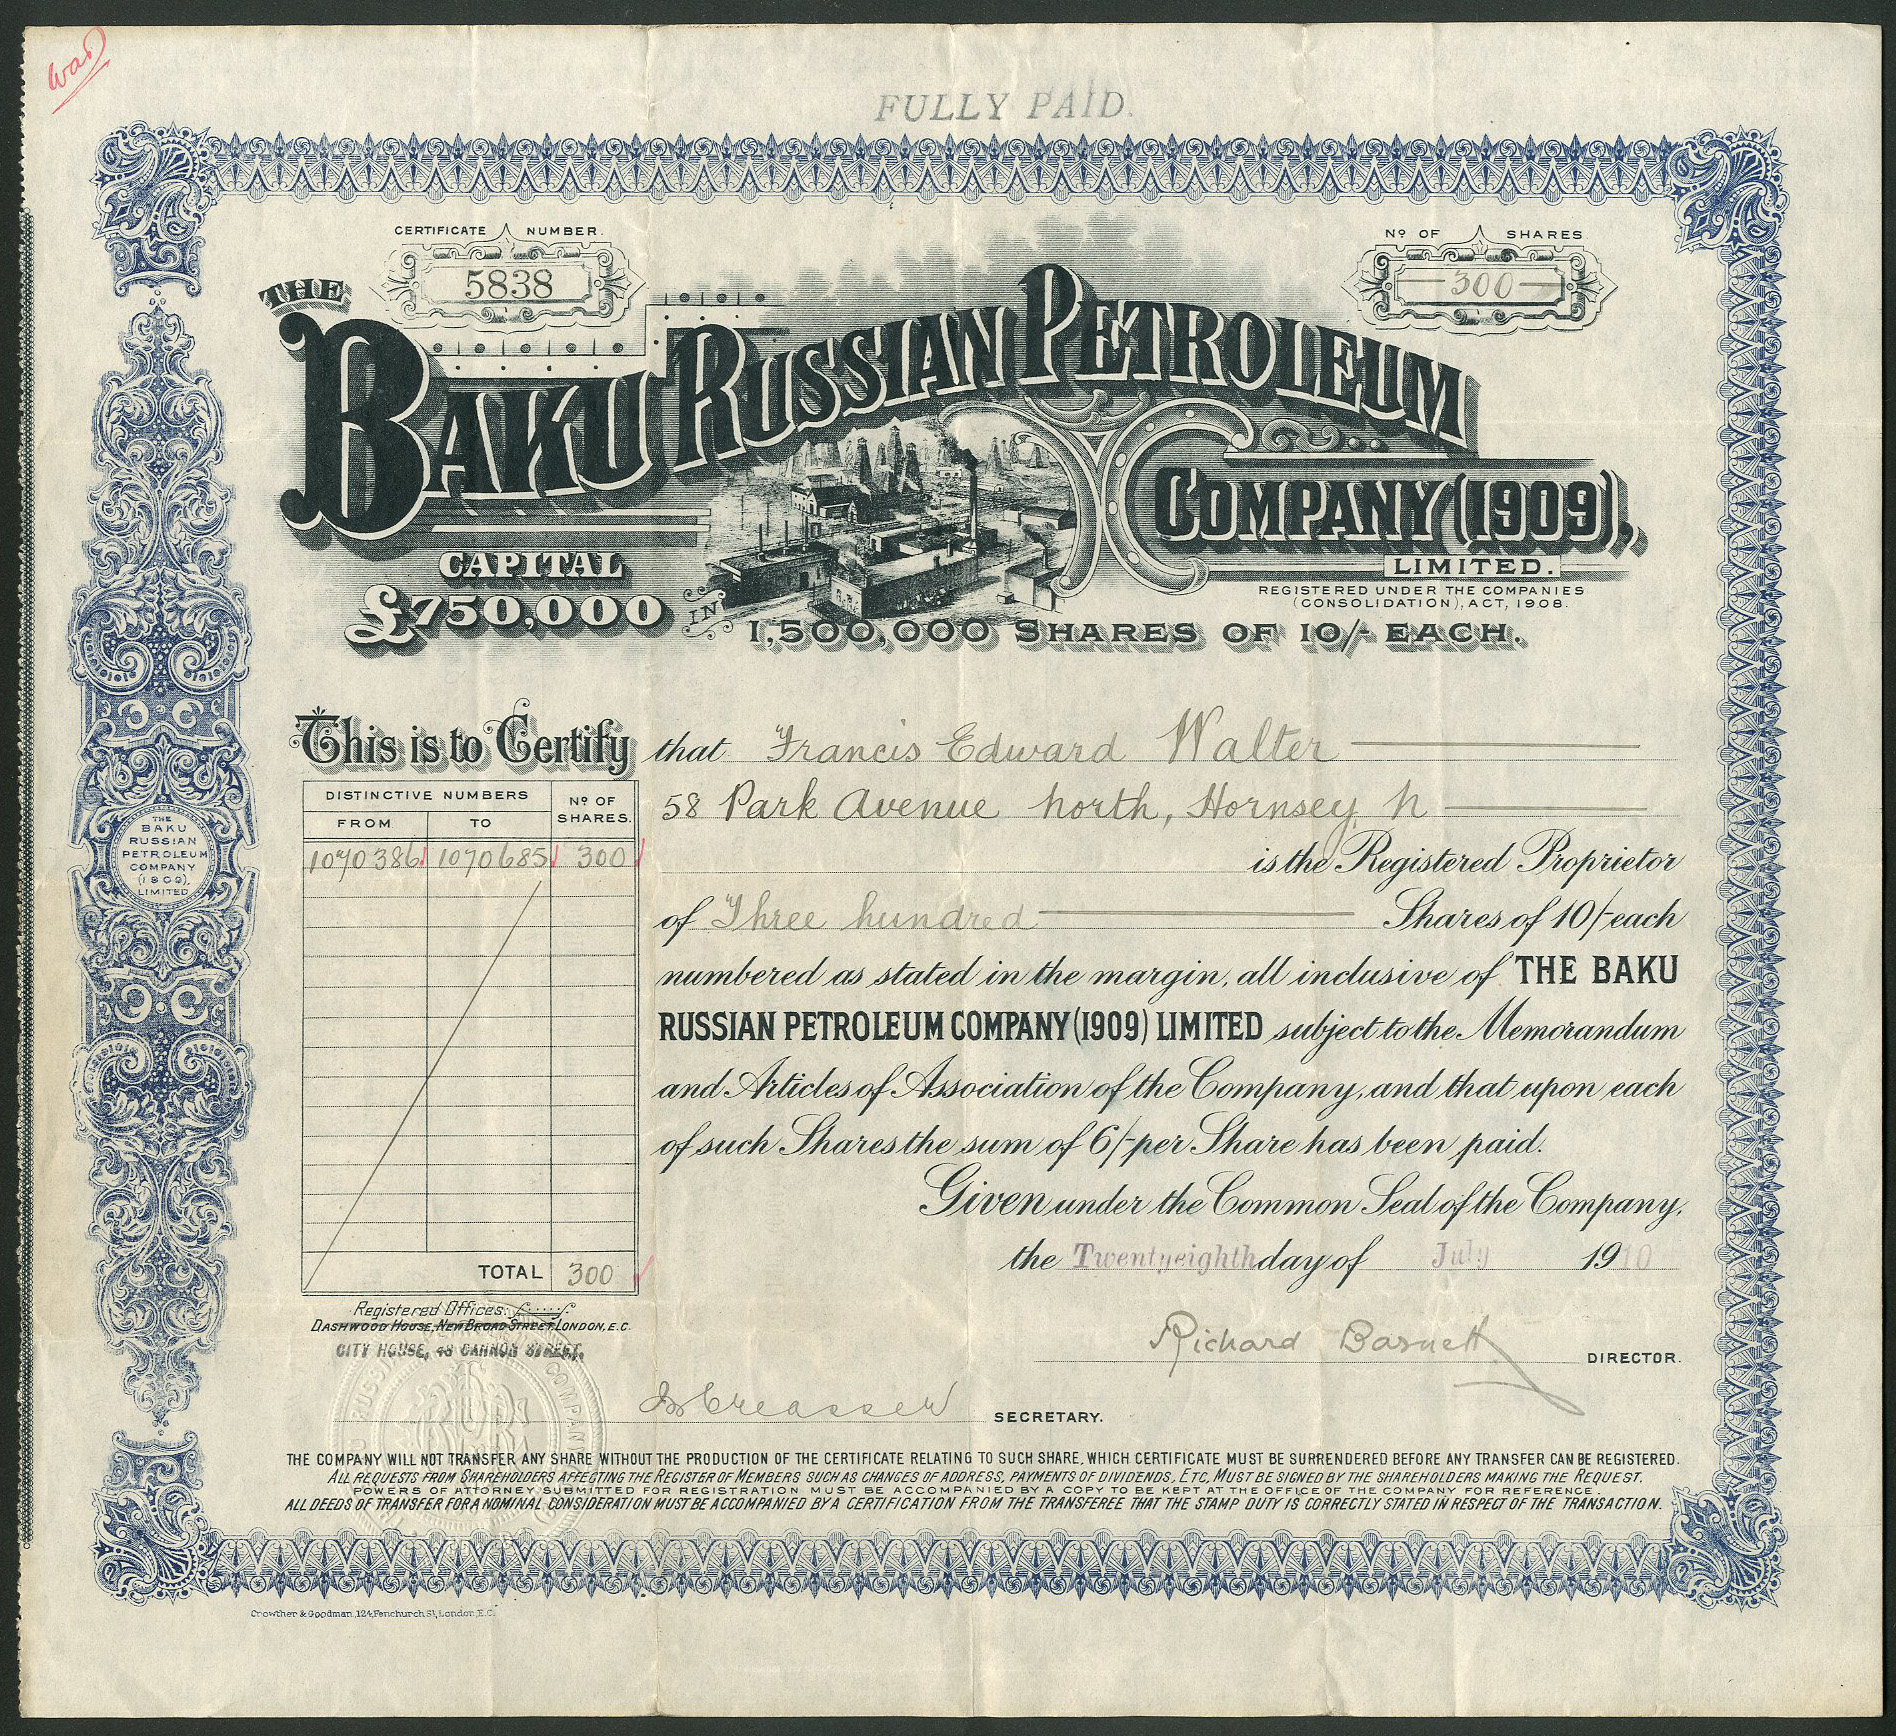 War
FULLY PAID.
CERTIFICATE NUMBER.
5838
Nº OF SHARES
300
THE
BAKU RUSSIAN PETROLEUM
COMPANY (1909),
LIMITED.
REGISTERED UNDER THE COMPANIES
(CONSOLIDATION), ACT, 1908.
CAPITAL
£750,000 IN 1,500,000 SHARES OF 10/- EACH.
This is to Certify that Francis Edward Walter
58 Park Avenue North, Hornsey, N
is the Registered Proprietor
of Three hundred Shares of 10/- each
numbered as stated in the margin, all inclusive of THE BAKU
RUSSIAN PETROLEUM COMPANY (1909) LIMITED subject to the Memorandum
and Articles of Association of the Company, and that upon each
of such Shares the sum of 6/- per Share has been paid.
Given under the Common Seal of the Company,
the Twentyeighth day of July 1910
DISTINCTIVE NUMBERS
Nº OF SHARES.
FROM TO
1070386 1070685 300
TOTAL 300
THE
BAKU
RUSSIAN
PETROLEUM
COMPANY
(1909),
LIMITED
Registered Offices:
DASHWOOD HOUSE, NEW BROAD STREET, LONDON, E.C.
CITY HOUSE, 48 CANNON STREET,
Richard Barnett
DIRECTOR.
SECRETARY.
THE COMPANY WILL NOT TRANSFER ANY SHARE WITHOUT THE PRODUCTION OF THE CERTIFICATE RELATING TO SUCH SHARE, WHICH CERTIFICATE MUST BE SURRENDERED BEFORE ANY TRANSFER CAN BE REGISTERED.
ALL REQUESTS FROM SHAREHOLDERS AFFECTING THE REGISTER OF MEMBERS SUCH AS CHANGES OF ADDRESS, PAYMENTS OF DIVIDENDS, ETC, MUST BE SIGNED BY THE SHAREHOLDERS MAKING THE REQUEST.
POWERS OF ATTORNEY SUBMITTED FOR REGISTRATION MUST BE ACCOMPANIED BY A COPY TO BE KEPT AT THE OFFICE OF THE COMPANY FOR REFERENCE.
ALL DEEDS OF TRANSFER FOR A NOMINAL CONSIDERATION MUST BE ACCOMPANIED BY A CERTIFICATION FROM THE TRANSFEREE THAT THE STAMP DUTY IS CORRECTLY STATED IN RESPECT OF THE TRANSACTION.
Crowther & Goodman, 124, Fenchurch St, London, E.C.